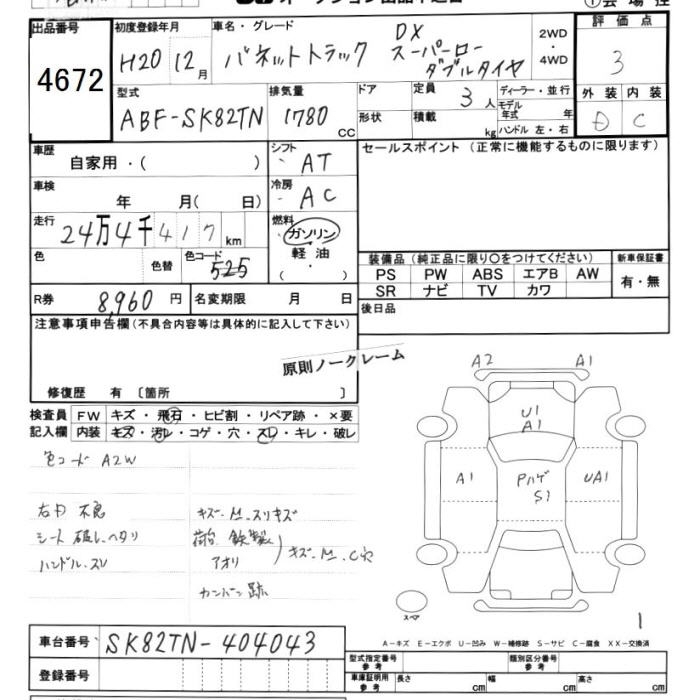 出品番号 4672
初度登録年月 H20 12月
車名・グレード バネットトラック DX スーパーロー ダブルタイヤ
2WD・4WD
評価点 3
外装 D 内装 C
型式 ABF-SK82TN
排気量 1780 CC
ドア
形状
定員 3人
積載 kg
ディーラー・並行
モデル年式 年
ハンドル 左・右
車歴 自家用・( )
シフト AT
車検 年 月( 日)
冷房 AC
走行 24万4千417km
燃料 ガソリン 軽油 ( ・ )
色 色替 色コード 525
R券 8,960円 名変期限 月 日
セールスポイント(正常に機能するものに限ります)
装備品(純正品に限り○をつけてください) 新車保証書
PS PW ABS エアB AW 有・無
SR ナビ TV カワ
後日品
注意事項申告欄(不具合内容等は具体的に記入して下さい)
原則ノークレーム
修復歴 有 〔箇所 〕
検査員記入欄
FW キズ・飛石・ヒビ割・リペア跡・×要
内装 キズ・汚レ・コゲ・穴・スレ・キレ・破レ
色コード A2W
シート 破レ、ヘタリ
ハンドル、スレ
キズ・M・スリキズ
荷台 鉄製
アオリ
キズ・M・C穴
カンバン跡
A2 A1
U1
A1
A1 Pハゲ UA1
S1
スペア
1
A-キズ E-エクボ U-凹み W-補修跡 S-サビ C-腐食 XX-交換済
車台番号 SK82TN-404043
登録番号
型式指定番号 参考 類別区分番号 参考
車庫証明用 参考 長さ cm 幅 cm 高さ cm